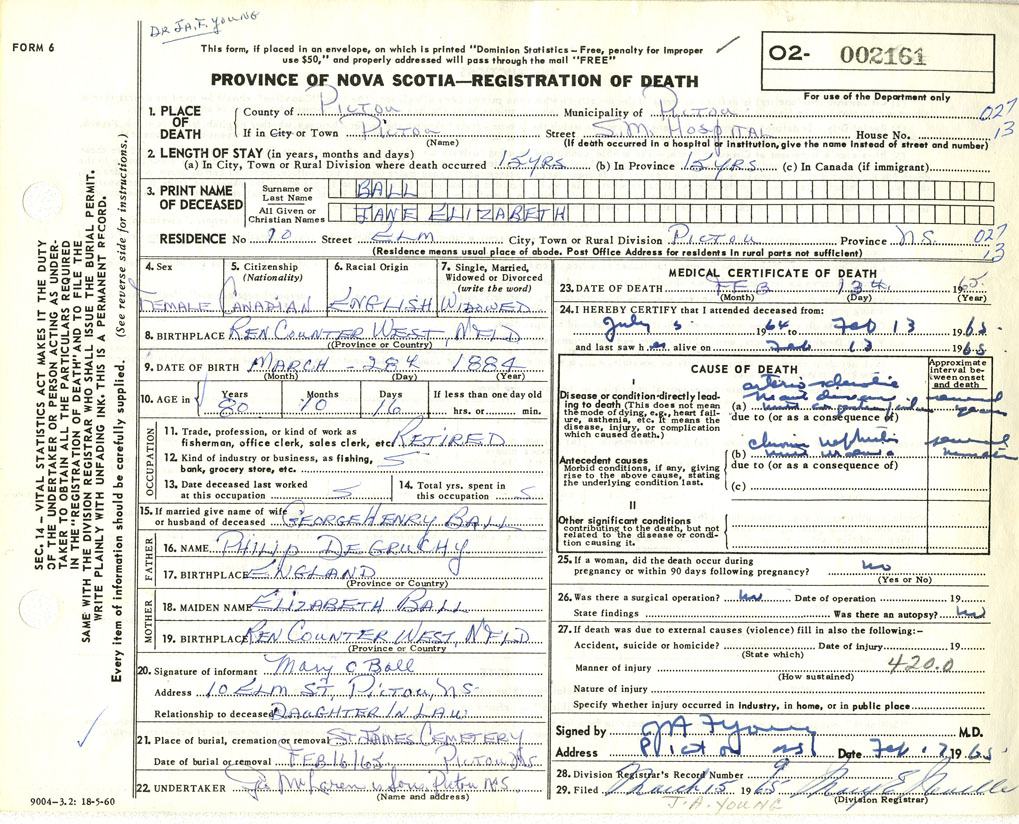 DR J.A.F. YOUNG
FORM 6
This form, if placed in an envelope, on which is printed "Dominion Statistics – Free, penalty for improper
use $50," and properly addressed will pass through the mail "FREE"
PROVINCE OF NOVA SCOTIA—REGISTRATION OF DEATH
O2- 002161
For use of the Department only
1. PLACE OF DEATH
County of PICTOU Municipality of PICTOU 027
If in City or Town PICTOU (Name) Street S.M. HOSPITAL House No. 13
(If death occurred in a hospital or institution, give the name instead of street and number)
2. LENGTH OF STAY (in years, months and days)
(a) In City, Town or Rural Division where death occurred 15 YRS (b) In Province 15 YRS (c) In Canada (if immigrant)
3. PRINT NAME OF DECEASED
Surname or Last Name BALL
All Given or Christian Names JANE ELIZABETH
RESIDENCE No 10 Street ELM City, Town or Rural Division PICTOU Province N.S. 027
13
(Residence means usual place of abode. Post Office Address for residents in rural parts not sufficient)
4. Sex FEMALE
5. Citizenship (Nationality) CANADIAN
6. Racial Origin ENGLISH
7. Single, Married, Widowed or Divorced (write the word) WIDOWED
8. BIRTHPLACE REN COUNTER WEST, NFLD
(Province or Country)
9. DATE OF BIRTH MARCH 28th 1884
(Month) (Day) (Year)
10. AGE in Years Months Days If less than one day old
80 10 16 hrs. or min.
OCCUPATION
11. Trade, profession, or kind of work as
fisherman, office clerk, sales clerk, etc. RETIRED
12. Kind of industry or business, as fishing,
bank, grocery store, etc.
13. Date deceased last worked
at this occupation
14. Total yrs. spent in
this occupation
15. If married give name of wife
or husband of deceased GEORGE HENRY BALL
FATHER
16. NAME PHILIP DEGRUCHY
17. BIRTHPLACE ENGLAND
(Province or Country)
MOTHER
18. MAIDEN NAME ELIZABETH BALL
19. BIRTHPLACE REN COUNTER WEST, NFLD
(Province or Country)
20. Signature of informant Mary C Ball
Address 10 ELM ST, PICTOU, N.S.
Relationship to deceased DAUGHTER IN LAW
21. Place of burial, cremation or removal ST. JAMES CEMETERY
Date of burial or removal FEB 16/65 PICTOU N.S.
22. UNDERTAKER McLaren & Sons Pictou NS
(Name and address)
9004-3.2: 18-5-60
MEDICAL CERTIFICATE OF DEATH
23. DATE OF DEATH FEB 13th 1965
(Month) (Day) (Year)
24. I HEREBY CERTIFY that I attended deceased from:
July 5 1964 to Feb 13 1965
and last saw her alive on Feb 13 1965
CAUSE OF DEATH
Approximate interval between onset and death
I
Disease or condition directly leading to death (This does not mean the mode of dying, e.g., heart failure, asthenia, etc. It means the disease, injury, or complication which caused death.)
arterio sclerotic
(a) heart disease several years
due to (or as a consequence of)
Antecedent causes
Morbid conditions, if any, giving rise to the above cause, stating the underlying condition last.
chronic nephritis several
(b) with uremia months
due to (or as a consequence of)
(c)
II
Other significant conditions
contributing to the death, but not related to the disease or condition causing it.
25. If a woman, did the death occur during
pregnancy or within 90 days following pregnancy? no
(Yes or No)
26. Was there a surgical operation? no Date of operation 19
State findings Was there an autopsy? no
27. If death was due to external causes (violence) fill in also the following:–
Accident, suicide or homicide? Date of injury 19
(State which)
Manner of injury 420.0
(How sustained)
Nature of injury
Specify whether injury occurred in industry, in home, or in public place
Signed by JA F Young M.D.
Address Pictou NS Date Feb. 17 1965
28. Division Registrar's Record Number 9
29. Filed March 15 1965 Mary E
(Division Registrar)
J.A. YOUNG
SEC. 14 – VITAL STATISTICS ACT MAKES IT THE DUTY
OF THE UNDERTAKER OR PERSON ACTING AS UNDER-
TAKER TO OBTAIN ALL THE PARTICULARS REQUIRED
IN THE "REGISTRATION OF DEATH" AND TO FILE THE
SAME WITH THE DIVISION REGISTRAR WHO SHALL ISSUE THE BURIAL PERMIT.
WRITE PLAINLY WITH UNFADING INK. THIS IS A PERMANENT RECORD.
Every item of information should be carefully supplied. (See reverse side for instructions.)